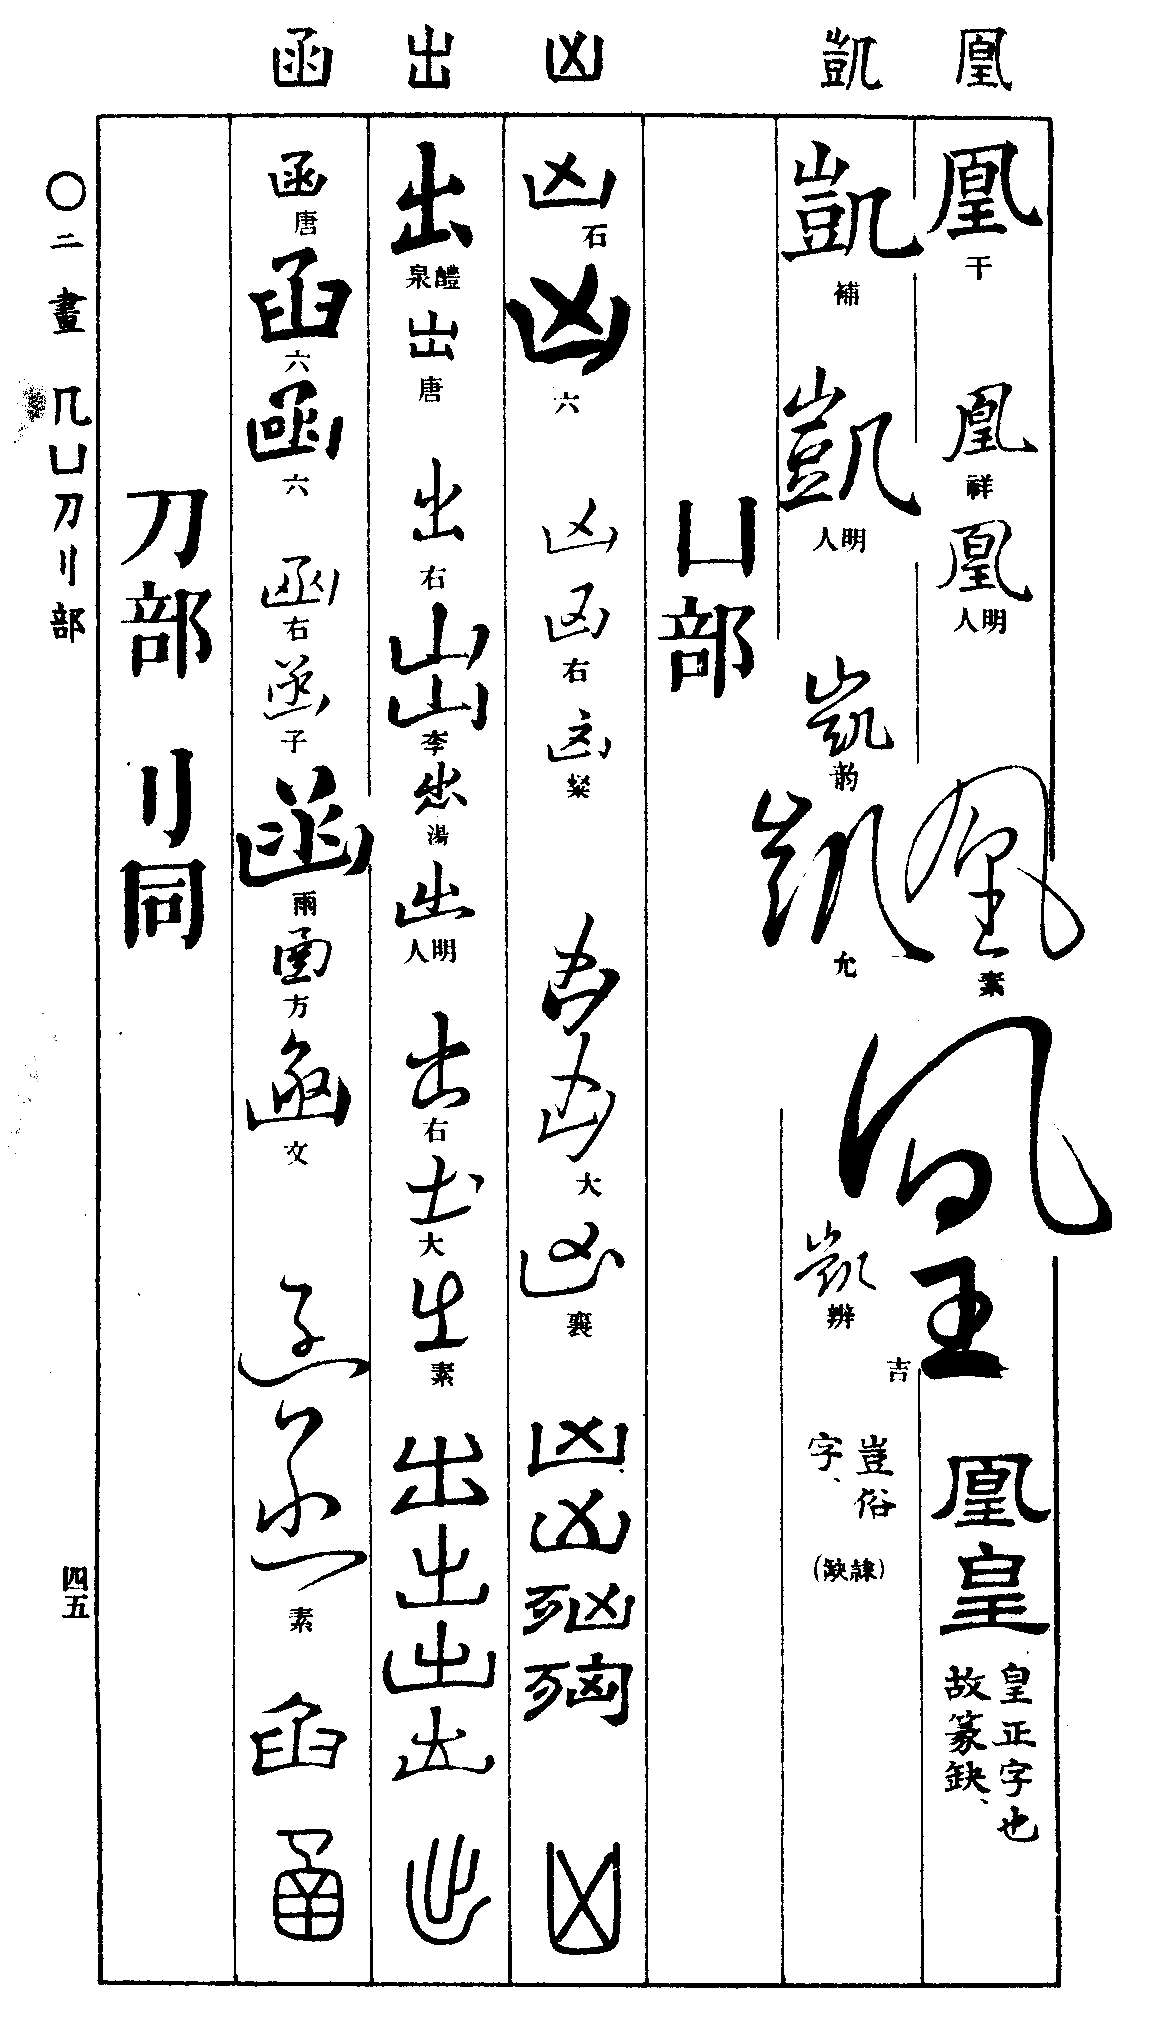 凰 凱 凶 出 函
凰 干
凰 祥
凰 明人
凰 素
凰 吉
凰
皇
皇正字也
故篆缺、
凱 補
凱 明人
凱 韵
凱 允
凱 辨
豈俗
字、
(隸缺)
凵部
凶 石
凶 六
凶
凶 右
凶 粲
凶
凶 大
凶 襄
凶
凶
出 醴泉
出 唐
出 右
出 李
出 湯
出 明人
出 右
出 大
出 素
出
出
出
出
出
函 唐
函 六
函 六
函 右
函 子
函 雨
函 方
函 文
函
函 素
函
函
刀部 刂同
〇二畫 几凵刀刂部
四五